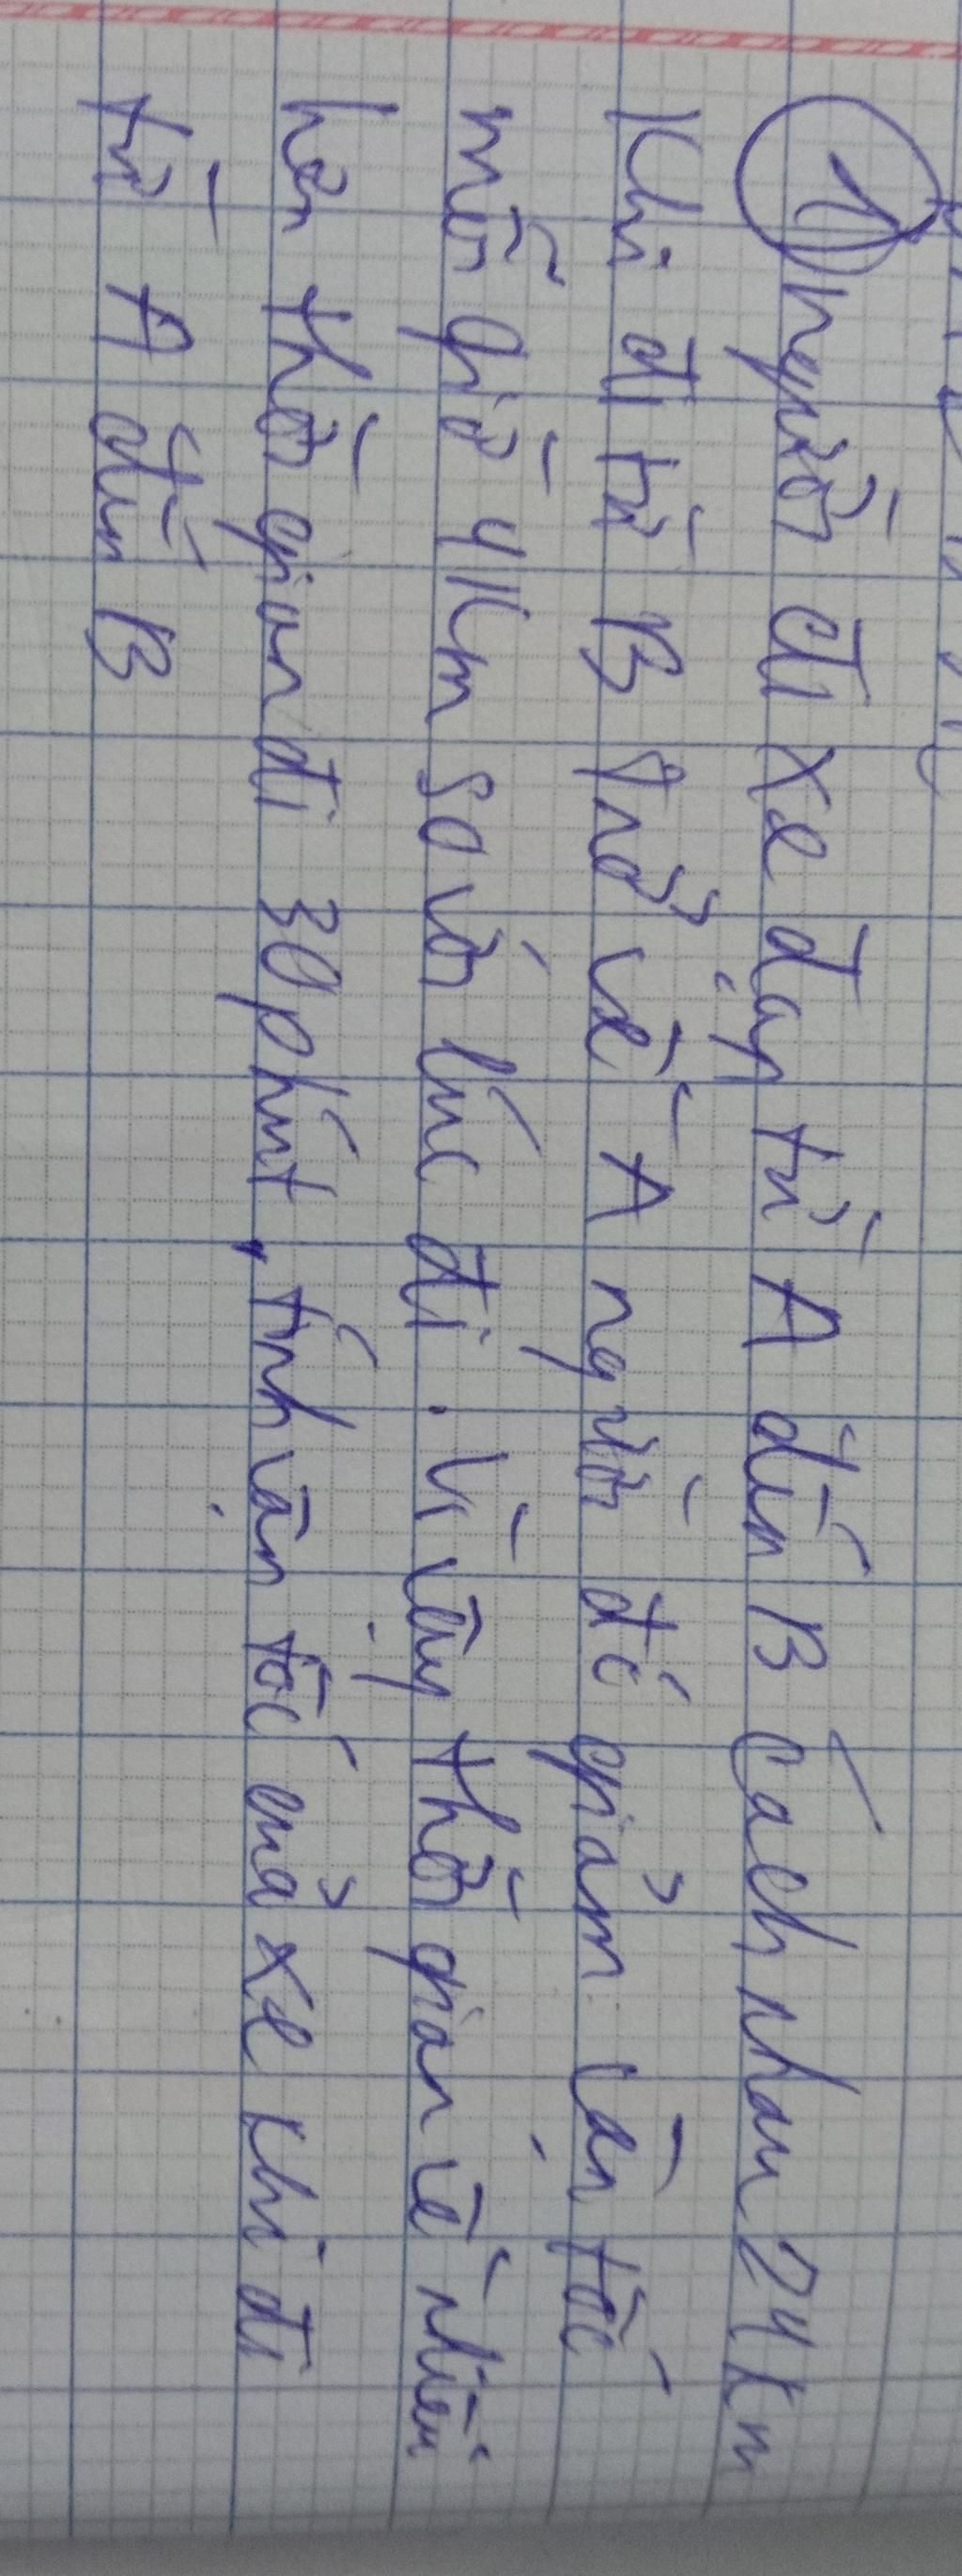 ① người đi xe đạp từ A đến B cách nhau 24 Km
Khi đi từ B trở về A người đó giảm vận tốc
mỗi giờ 4Km so với lúc đi. Vì vậy thời gian về nhiều
hơn thời gian đi 30 phút, tính vận tốc của xe khi đi
từ A đến B